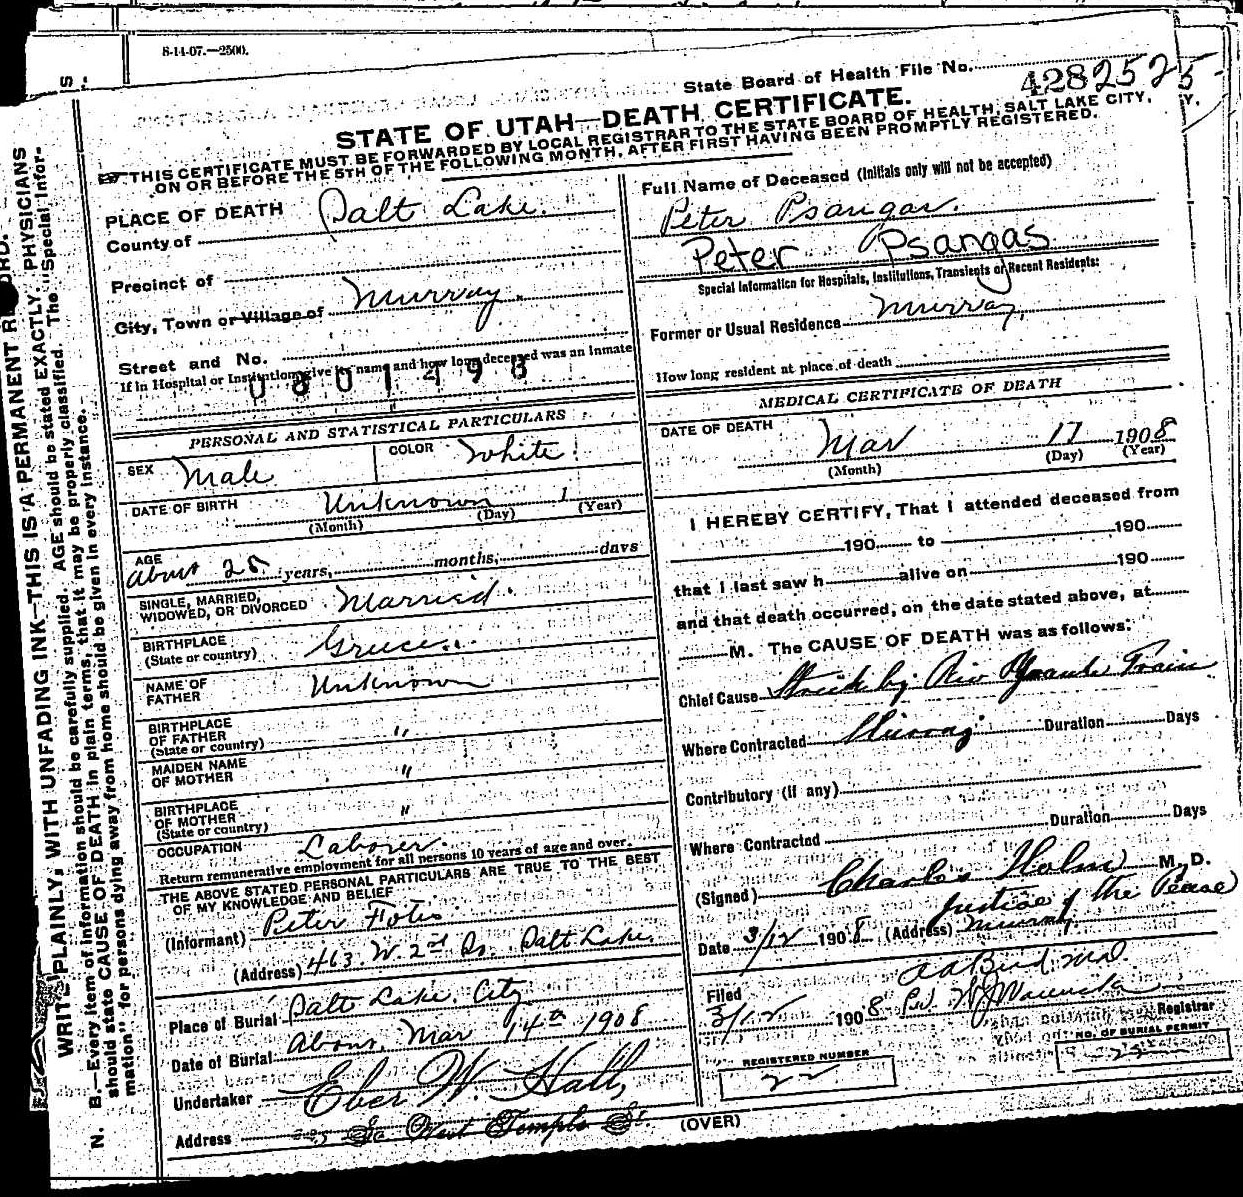 8-14-07.—2500.
State Board of Health File No. 4282525
STATE OF UTAH—DEATH CERTIFICATE.
THIS CERTIFICATE MUST BE FORWARDED BY LOCAL REGISTRAR TO THE STATE BOARD OF HEALTH, SALT LAKE CITY,
ON OR BEFORE THE 5TH OF THE FOLLOWING MONTH, AFTER FIRST HAVING BEEN PROMPTLY REGISTERED.
PLACE OF DEATH
County of Salt Lake.
Precinct of
City, Town or Village of Murray.
Street and No.
If in Hospital or Institution, give its name and how long deceased was an Inmate
0801498
PERSONAL AND STATISTICAL PARTICULARS
SEX Male COLOR White
DATE OF BIRTH Unknown 1
(Month) (Day) (Year)
AGE
About 28 years, months, days
SINGLE, MARRIED,
WIDOWED, OR DIVORCED Married.
BIRTHPLACE
(State or country) Greece.
NAME OF
FATHER Unknown
BIRTHPLACE
OF FATHER
(State or country) "
MAIDEN NAME
OF MOTHER "
BIRTHPLACE
OF MOTHER
(State or country) "
OCCUPATION Laborer.
Return remunerative employment for all persons 10 years of age and over.
THE ABOVE STATED PERSONAL PARTICULARS ARE TRUE TO THE BEST
OF MY KNOWLEDGE AND BELIEF
(Informant) Peter Fotis
(Address) 463 W. 2nd So. Salt Lake.
Place of Burial Salt Lake City
Date of Burial About Mar 14th 1908
Undertaker Eber W. Hall,
Address So West Temple St.
Full Name of Deceased (Initials only will not be accepted)
Peter Psangas.
Peter Psangas
Special Information for Hospitals, Institutions, Transients or Recent Residents:
Former or Usual Residence Murray,
How long resident at place of death
MEDICAL CERTIFICATE OF DEATH
DATE OF DEATH Mar 11 1908
(Month) (Day) (Year)
I HEREBY CERTIFY, That I attended deceased from
190 to 190
that I last saw h alive on 190
and that death occurred, on the date stated above, at
M. The CAUSE OF DEATH was as follows:
Chief Cause Struck by Rio Grande Train
Where Contracted Murray Duration Days
Contributory (if any)
Where Contracted Duration Days
(Signed) Charles Holm M. D.
Justice of the Peace
Date 3/12 1908 (Address) Murray
Filed
3/12 1908
Registrar
REGISTERED NUMBER
22
NO. OF BURIAL PERMIT
22
(OVER)
WRITE PLAINLY, WITH UNFADING INK—THIS IS A PERMANENT RECORD.
N. B.—Every item of information should be carefully supplied. AGE should be stated EXACTLY. PHYSICIANS
should state CAUSE OF DEATH in plain terms, that it may be properly classified. The "Special Infor-
mation" for persons dying away from home should be given in every instance.